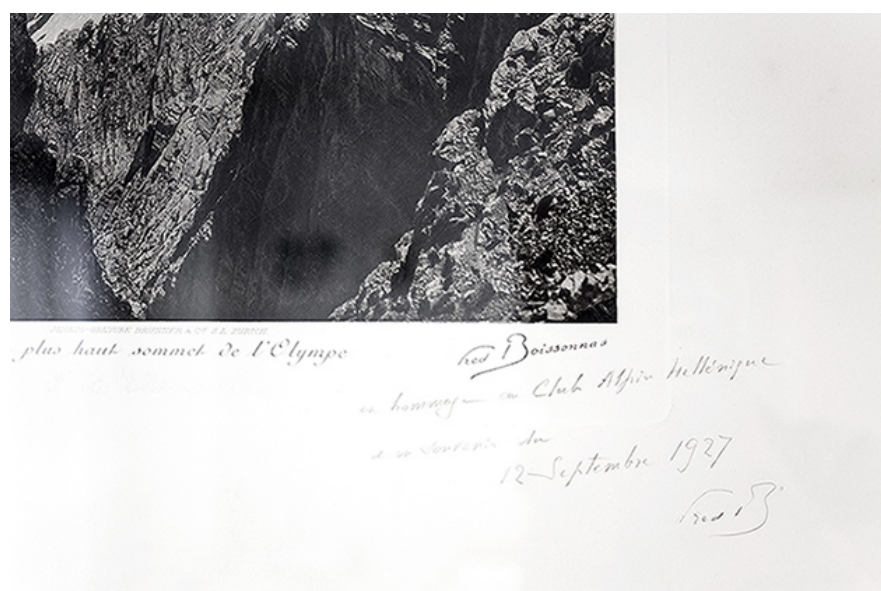 BRUNNER & Cº S.A. ZURICH.
plus haut sommet de l'Olympe
Fred Boissonnas
en hommage au Club Alpin Hellénique
souvenir du
12 Septembre 1927
Fred B